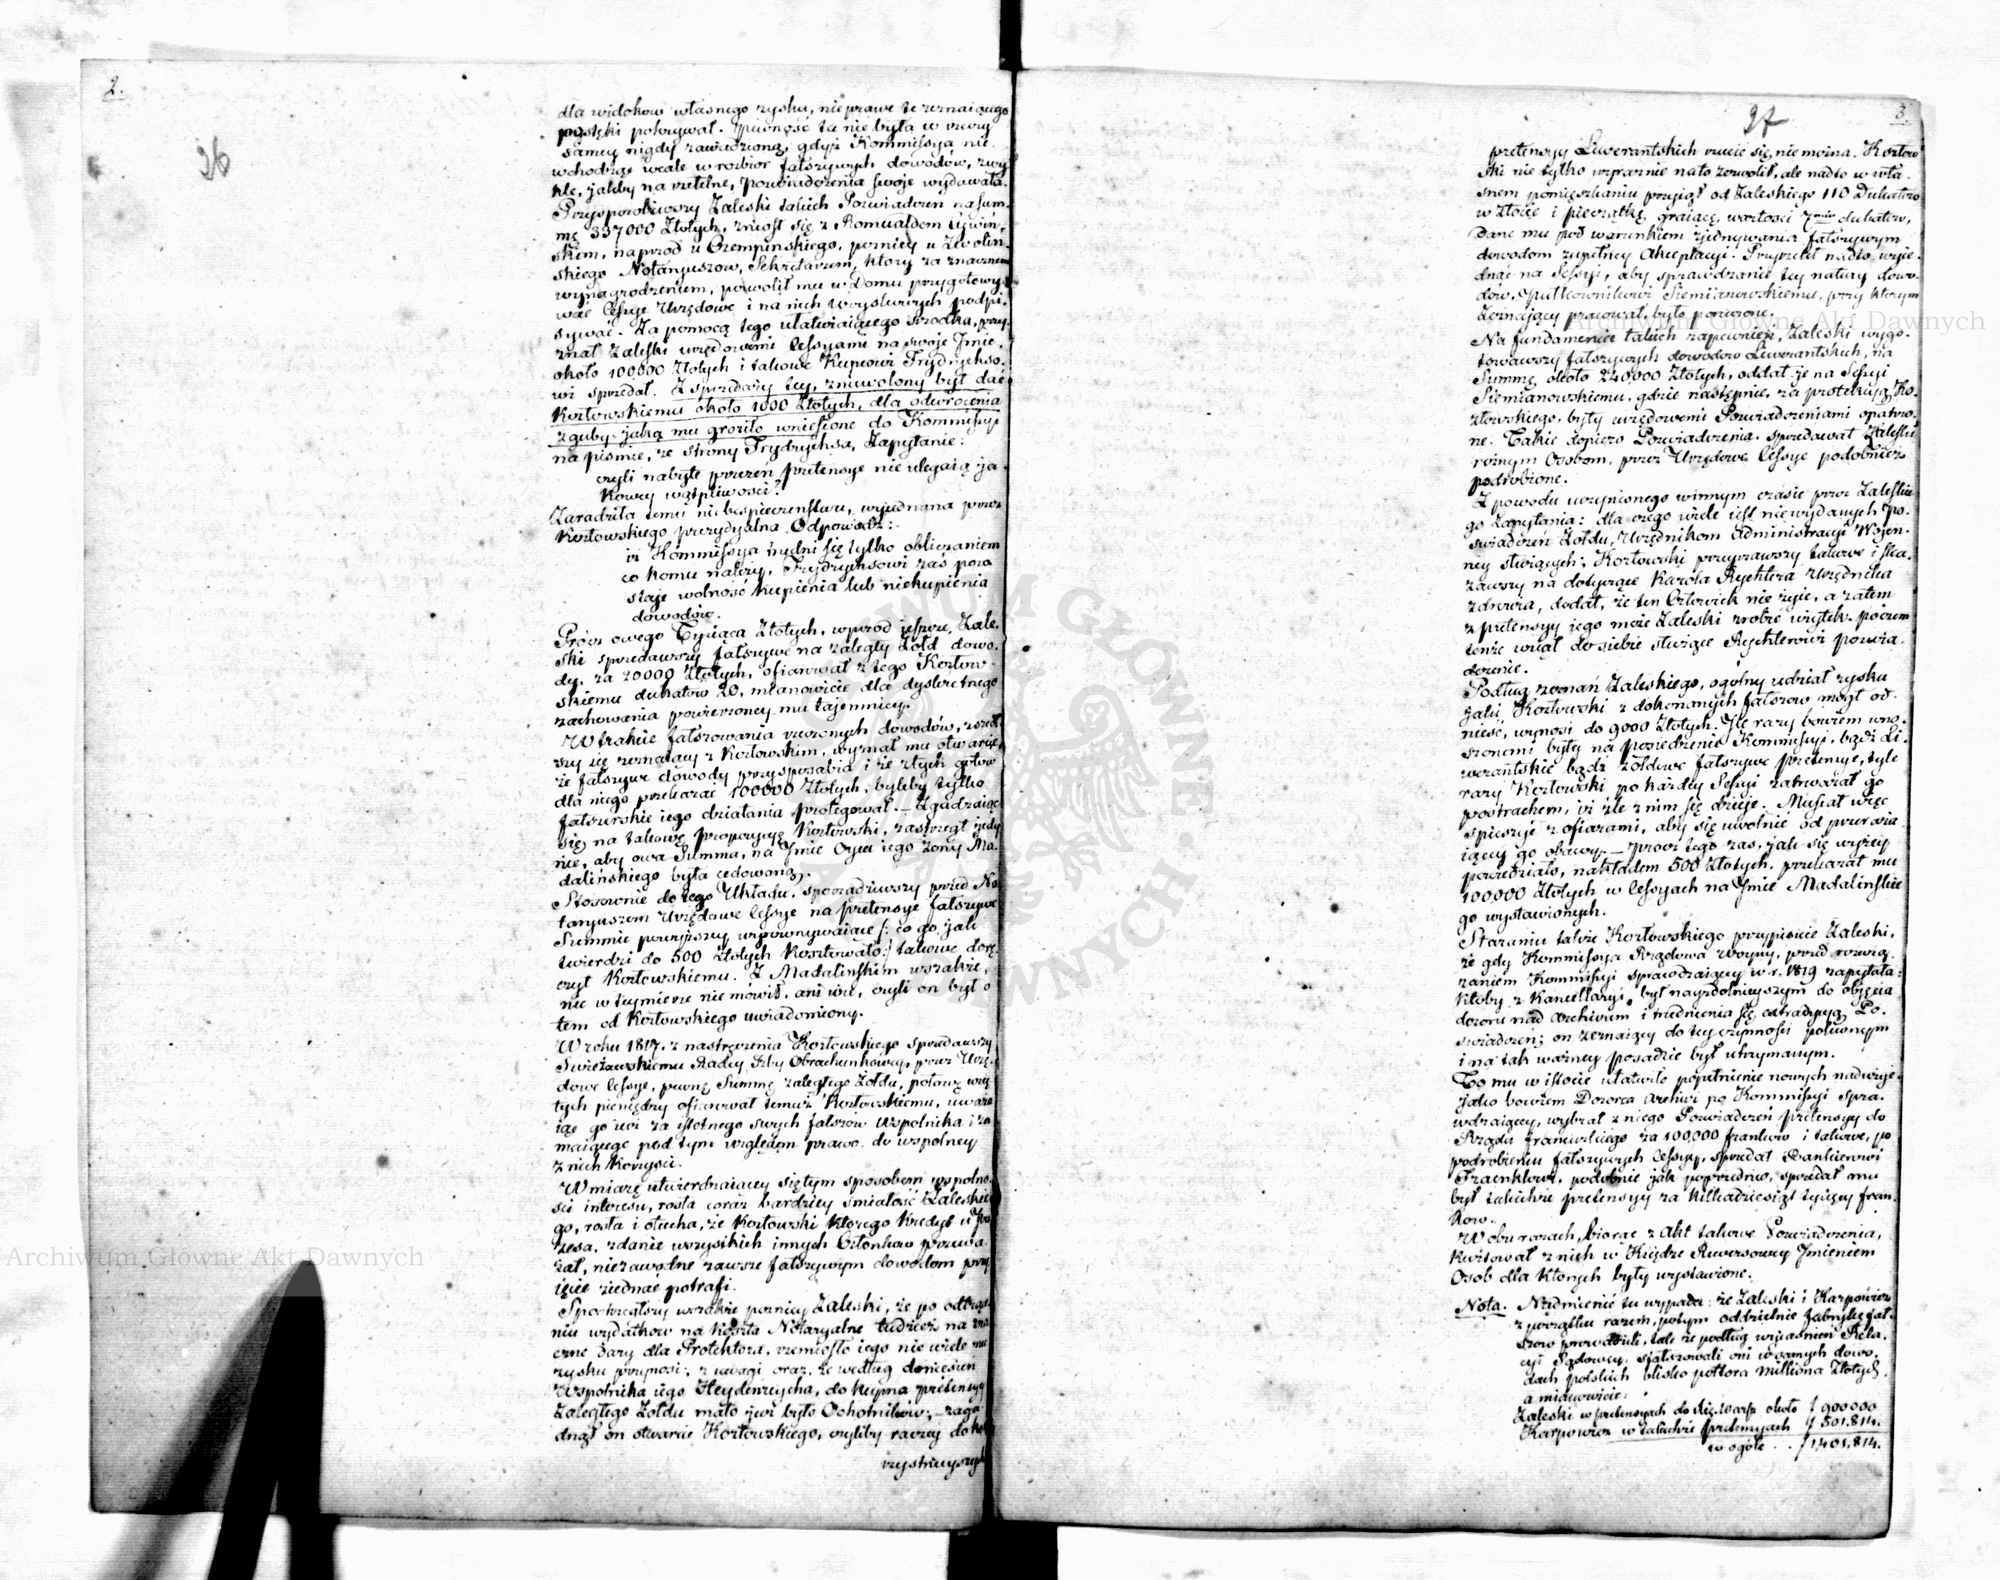 2.
26
dla widokow własnego zysku, nieprawe te zeznaiącego
postęki pokrywał. Pewność ta nie była w rzeczy
samey nigdy zawiedzioną, gdyż Kommissya nie
wchodząc wcale w rozbior fałszywych dowodów, zwy
kle, jakby na rzetelne, Poświadczenia swoje wydawała.
Przysposobiwszy Zaleski takich Poświadczeń na sum-
mę 337000 Złotych, zniosł się z Romualdem
skim, naprzod u Czempinskiego, pozniey u Zwolin-
skiego Notaryuszow, Sekretarzem, ktory za znacznem
wynagrodzeniem, pozwolił mu w Domu przygotowy-
wać Cessye Urzędowe i na nich wszystkich podpi-
sywać. Za pomocą tego ułatwiaiącego srzodka, przy-
znał Zaleski urzędowemi Cessyami na swoje Jmie
około 100000 Złotych i takowe Kupcowi Frydrychso-
wi sprzedał. Z sprzedaży tey, zniewolony był dać
Kozłowskiemu około 1000 Złotych, dla odwrocenia
zguby jaką mu groziło wniesione do Kommissyi
na pismie, ze strony Frydrychsa, Zapytanie:
czyli nabyte przezeń pretensye nie ulegaią ja-
kowey wątpliwości?
Zaradziła temu niebespieczenstwu, wyjednana przez
Kozłowskiego prezydyalna Odpowiedź:
iż Kommissya trudni się tylko obliczaniem
co komu należy, Frydrychsowi zaś pozo
staje wolność kupienia lub niekupienia
dowodów.
Prócz owego Tysiąca Złotych, wprzod jeszcze, Zale-
ski sprzedawszy fałszywe na zaległy Żołd dowo-
dy, za 20000 Złotych, ofiarował z tego Kozłow-
skiemu dukatow 20, mianowicie dla dyskretnego
zachowania powierzoney mu tajemnicy.
W trakcie fałszowania rzeczonych dowodów, zszed
szy się zeznaiący z Kozłowskim, wyznał mu otwarcie,
że fałszywe dowody przysposabia i że z tych gotow
dla niego przekazać 100000 Złotych, byleby tylko
fałszerskie iego działania protegował. – Zgadzaiąc
się na takową propozycyę Kozłowski, zastrzegł jedy
nie, aby owa Summa, na Jmie Oyca iego żony Ma-
dalińskiego była cedowaną.
Stosownie do tego Układu, sporządziwszy przed No
taryuszem Urzędowe Cessye na pretensye fałszywe
Summie powyższey wyrownywaiące /: co go jak
twierdzi do 500 Złotych kosztowało :/ takowe dorę-
czył Kozłowskiemu. Z Madalinskim wszakże,
nic w teymierze nie mówił, ani wie, czyli on był o
tem od Kozłowskiego uwiadomiony.
W roku 1817. z nastręczenia Kozłowskiego sprzedawszy
Swieżawskiemu Radcy Izby Obrachunkowey, przez Urzę-
dowe Cessye, pewną Summę zaległego Żołdu, połowę wzię-
tych pieniędzy ofiarował temuż Kozłowskiemu, uważa
iąc go iuż za istotnego swych fałszow Wspolnika i za
maiącego pod tym względem prawo do wspolney
z nich korzyści.
W miarę utwierdzaiącey się tym sposobem wspolno-
ści interesu, rosła coraz bardziey smiałość Zaleskie-
go, rosła i otucha, że Kozłowski ktorego kredyt u Pre
zesa, zdanie wszystkich innych Członkow przewa-
żał, niezawodne zawsze fałszywym dowodom przy
ięcie ziednać potrafi.
Spostrzegłszy wszakże pozniey Zaleski, że po odtrące-
niu wydatkow na koszta Notaryalne tudzież na zna
czne dary dla Protektora, rzemiosło iego nie wiele mu
zysku przynosi; z uwagi oraz, że według doniesień
Wspolnika iego Heydenreycha, do kupna pretensyy
Zaległego Żołdu mało już było Ochotników; – zaga-
dnął on otwarcie Kozłowskiego, czyliby raczey do ko
rzystnieyszych
3.
27
pretensyy Liwerantskich rzucić się, nie można. Kozłow
ski nie tylko wyraznie na to zezwolił, ale nadto w wła-
snem pomieszkaniu przyjął od Zaleskiego 110 Dukatow
w złocie i pieczątkę, graiącę, wartości 7miu dukatow,
Dane mu pod warunkiem zjednywania fałszywym
dowodom zupełney Akceptacyi. Przyrzekł nadto wyje
dnać na Sessyi, aby sprawdzanie tey natury dowo-
dów, Pułkownikowi Siemianowskiemu, przy ktorym
Zeznaiący pracował, było poruczone.
Na fundamencie takich zapewnień, Zaleski wygo-
towawszy fałszywych dowodow Liwerantskich, na
Summę około 240000 Złotych, oddał je na Sessyi
Siemianowskiemu, gdzie następnie, za protekcyą Ko-
złowskiego, były urzędowemi Poswiadczeniami opatrzo-
ne. Takie dopiero Poswiadczenia sprzedawał Zaleski
roznym Osobom, przez Urzędowe Cessye podobnież
podrobione.
Z powodu uczynionego w innym czasie przez Zaleskie-
go zapytania: dla czego wiele jest niewydanych Po-
swiadczeń Żołdu, Urzędnikom Administracyi Wojen-
ney służących; Kozłowski przeyrzawszy takowe i ska-
zawszy na dotyczące Karola Rychtera Urzędnika
zdrowia, dodał, że ten Człowiek nie żyje, a zatem
z pretensyy iego może Zaleski zrobić użytek, poczem
tenże wziął do siebie służące Rychterowi poswia-
dczenie.
Podług zeznań Zaleskiego, ogolny udział zysku
jaki Kozłowski z dokonanych fałszow mogł od-
nieść, wynosi do 9000 Złotych. Ile razy bowiem wno-
szonemi były na posiedzenie Kommissyi, bądź Li-
werantskie bądź żołdowe fałszywe pretensye, tyle
razy Kozłowski po każdey Sessyi zatrważał go
postrachem, iż źle z nim się dzieje. Musiał więc
spieszyć z ofiarami, aby się uwolnić od przeraża-
iącey go obawy. – Procz tego zaś, jak się wyżey
powiedziało, nakładem 500 Złotych, przekazał mu
100000 Złotych w Cessyach na Jmie Madalinskie
go wystawionych.
Staraniu także Kozłowskiego przypisuie Zaleski,
że gdy Kommissya Rządowa Woyny, przed rozwią-
zaniem Kommissyi sprawdzaiącey w r. 1819 zapytała:
ktoby z Kancellaryi, był nayzdolnieyszym do objęcia
dozoru nad Archivum i trudnienia się extradycyą Po-
świadczeń; on zeznaiący do tey czynności poleconym
i na tak ważney posadzie był utrzymanym.
To mu w istocie ułatwiło popełnienie nowych nadużyć.
Jako bowiem Dozorca Archivi po Kommissyi Spra-
wdzaiącey, wybrał z niego Poswiadczeń pretensyy do
Rządu francuzkiego za 100,000 franków i takowe, po
podrobieniu fałszywych Cessyy, sprzedał Bankierowi
Fraenklowi, podobnie jak poprzednio, sprzedał mu
był takichże pretensyy za kilkadziesiąt tysięcy fran-
kow.
W obu razach, biorąc z Akt takowe Poswiadczenia,
kwitował z nich w Księdze Rewersowey Jmieniem
Osob dla ktorych były wystawione.
Nota. Nadmienić tu wypada: że Zaleski i Karpowicz
z początku razem, potym oddzielnie fabrykę fał-
szow prowadzili, tak że podług wyjaśnień Rela-
cyi Sądowey, sfałszowali oni w samych dowo-
dach polskich blisko połtora milliona Złotych,
a mianowicie:
Zaleski w pretensyach do Xię. Warsz około f 900000
Karpowicz w takichże pretensyach f 501.814.
w ogóle . . f 1,401,814.
Archiwum Główne Akt Dawnych
Archiwum Główne Akt Dawnych
ARCHIWUM GŁÓWNE AKT DAWNYCH